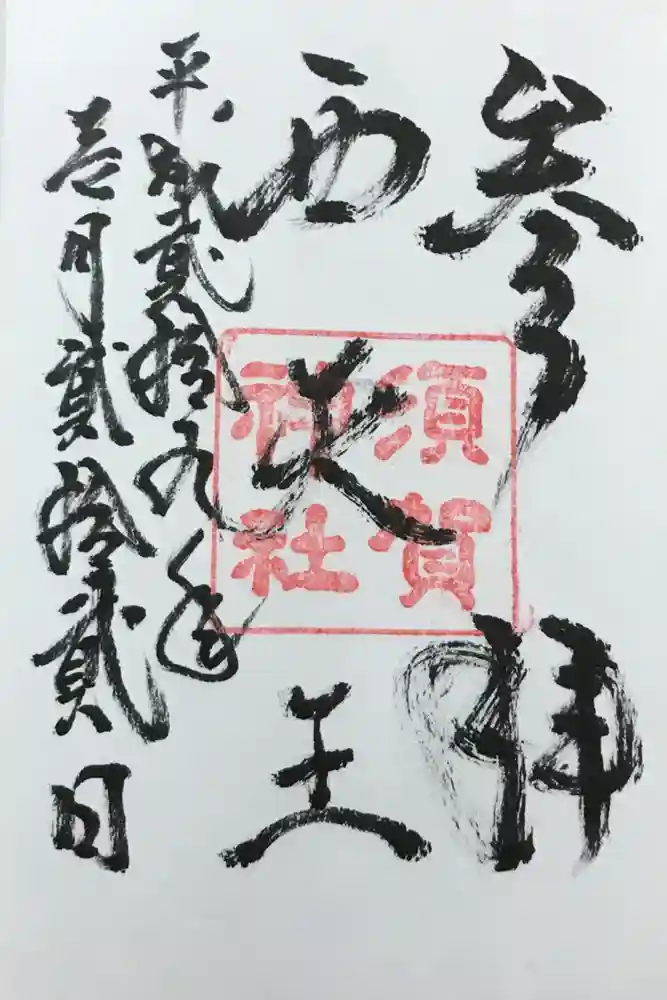 参拝
西天王
須賀
神社
平成貳拾九年
壱月貳拾貳日